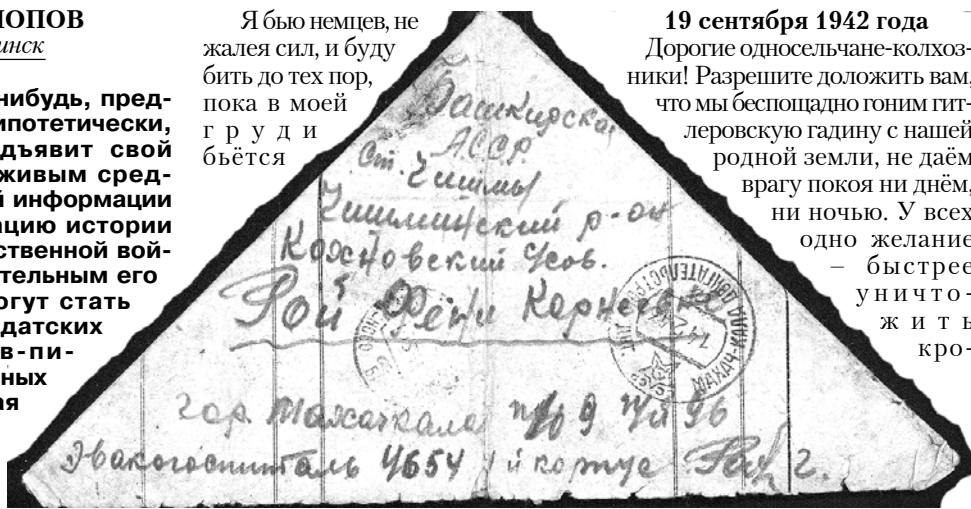 ПОПОВ
инск
нибудь, пред-
ипотетически,
дъявит свой
живым сред-
й информации
ацию истории
ственной вой-
тельным его
огут стать
датских
в-пи-
ных
ая
Я бью немцев, не
жалея сил, и буду
бить до тех пор,
пока в моей
груди
бьётся
Башкирская
АССР.
Ст. Чишмы
Чишминский р-он
Рой Фени
гор. Махачкала п/о 9 п/я 96
Эвакогоспиталь 4654 корпус
МАХАЧ-КАЛА
19 сентября 1942 года
Дорогие односельчане-колхоз-
ники! Разрешите доложить вам,
что мы беспощадно гоним гит-
леровскую гадину с нашей
родной земли, не даём
врагу покоя ни днём,
ни ночью. У всех
одно желание
– быстрее
уничто-
жить
кро-